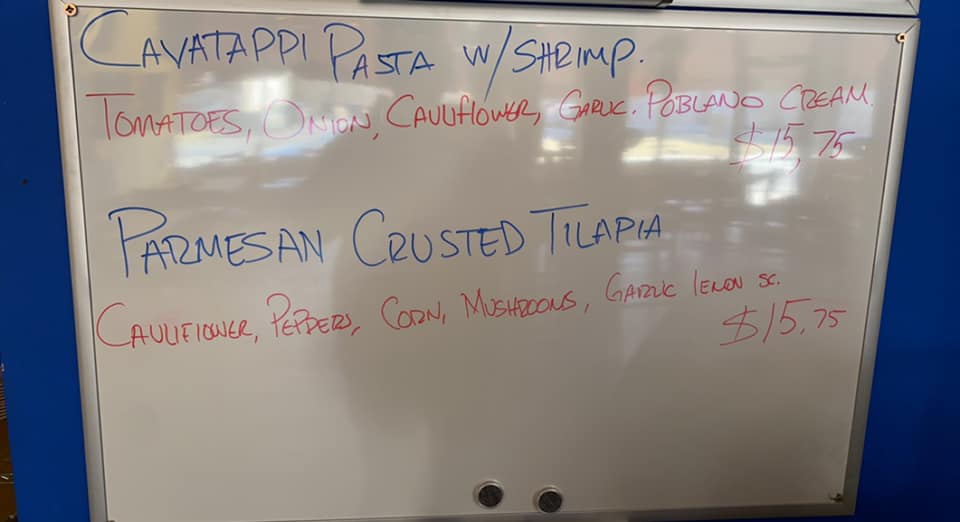 CAVATAPPI PASTA W/SHRIMP.
TOMATOES, ONION, CAULIFLOWER, GARLIC. POBLANO CREAM.
$15,75
PARMESAN CRUSTED TILAPIA
CAULIFLOWER, PEPPERS, CORN, MUSHROOMS, GARLIC LEMON SC.
$15.75